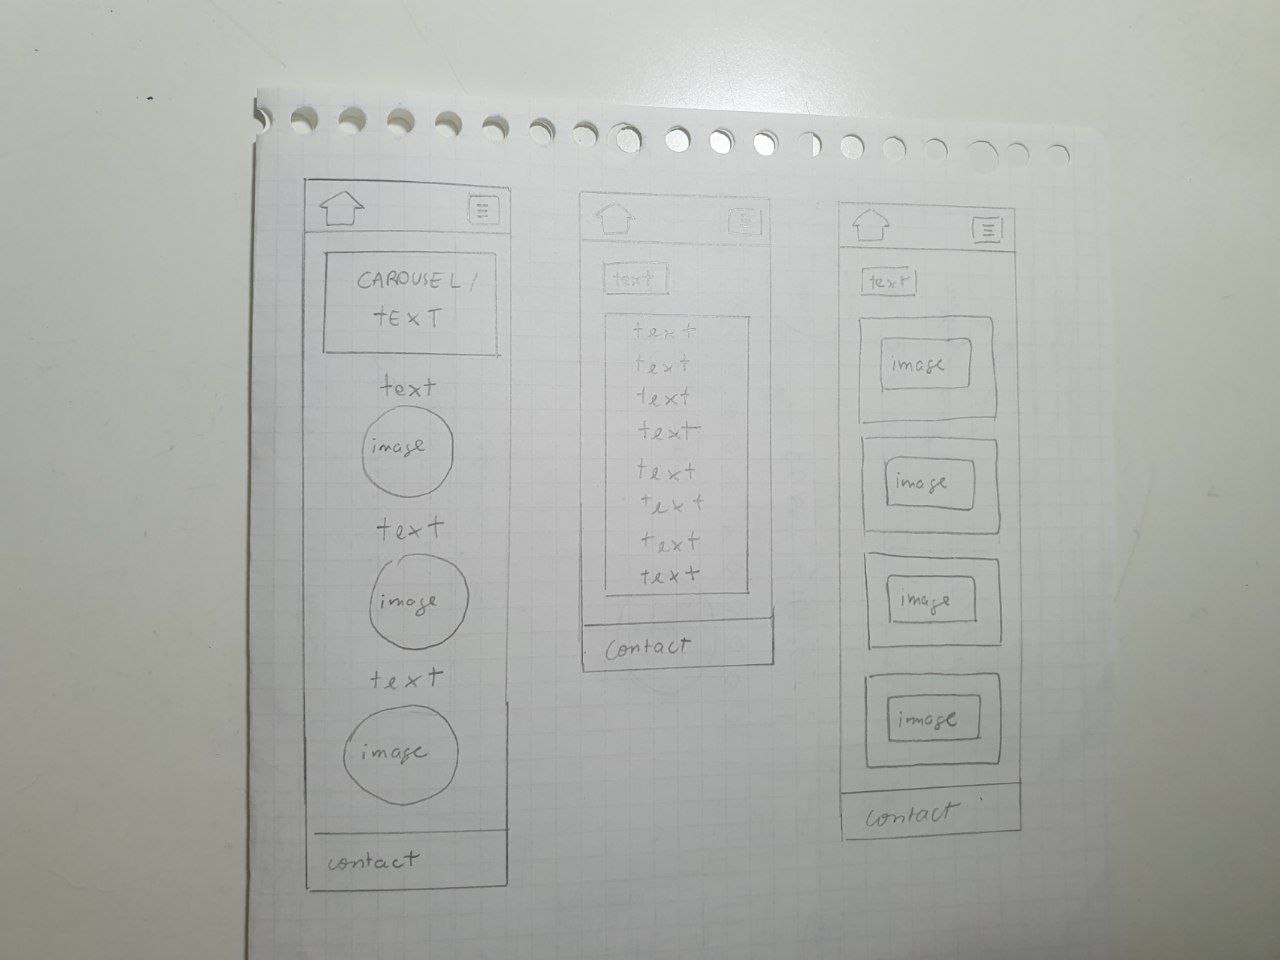 CAROUSEL/
tEXT
text
image
text
image
text
image
contact
text
text
text
text
text
text
text
text
text
contact
text
image
image
image
image
contact